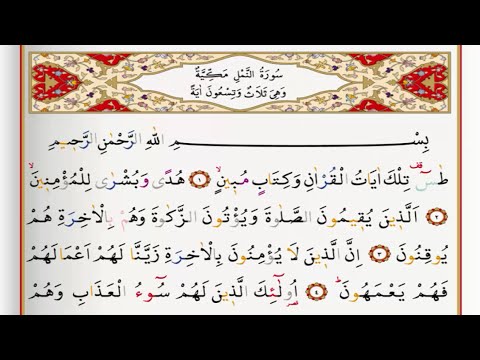 سُورَةُ النَّمْلِ مَكِّيَّةٌ
وَهِيَ ثَلَاثٌ وَتِسْعُونَ اٰيَةً
بِسْمِ اللّٰهِ الرَّحْمٰنِ الرَّحٖيمِ
طٰسٓ قف تِلْكَ اٰيَاتُ الْقُرْاٰنِ وَكِتَابٍ مُبٖينٍۙ ﴿١﴾ هُدًى وَبُشْرٰى لِلْمُؤْمِنٖينَۙ
﴿٢﴾ اَلَّذٖينَ يُقٖيمُونَ الصَّلٰوةَ وَيُؤْتُونَ الزَّكٰوةَ وَهُمْ بِالْاٰخِرَةِ هُمْ
يُوقِنُونَ ﴿٣﴾ اِنَّ الَّذٖينَ لَا يُؤْمِنُونَ بِالْاٰخِرَةِ زَيَّنَّا لَهُمْ اَعْمَالَهُمْ
فَهُمْ يَعْمَهُونَۜ ﴿٤﴾ اُو۬لٰٓئِكَ الَّذٖينَ لَهُمْ سُٓوءُ الْعَذَابِ وَهُمْ